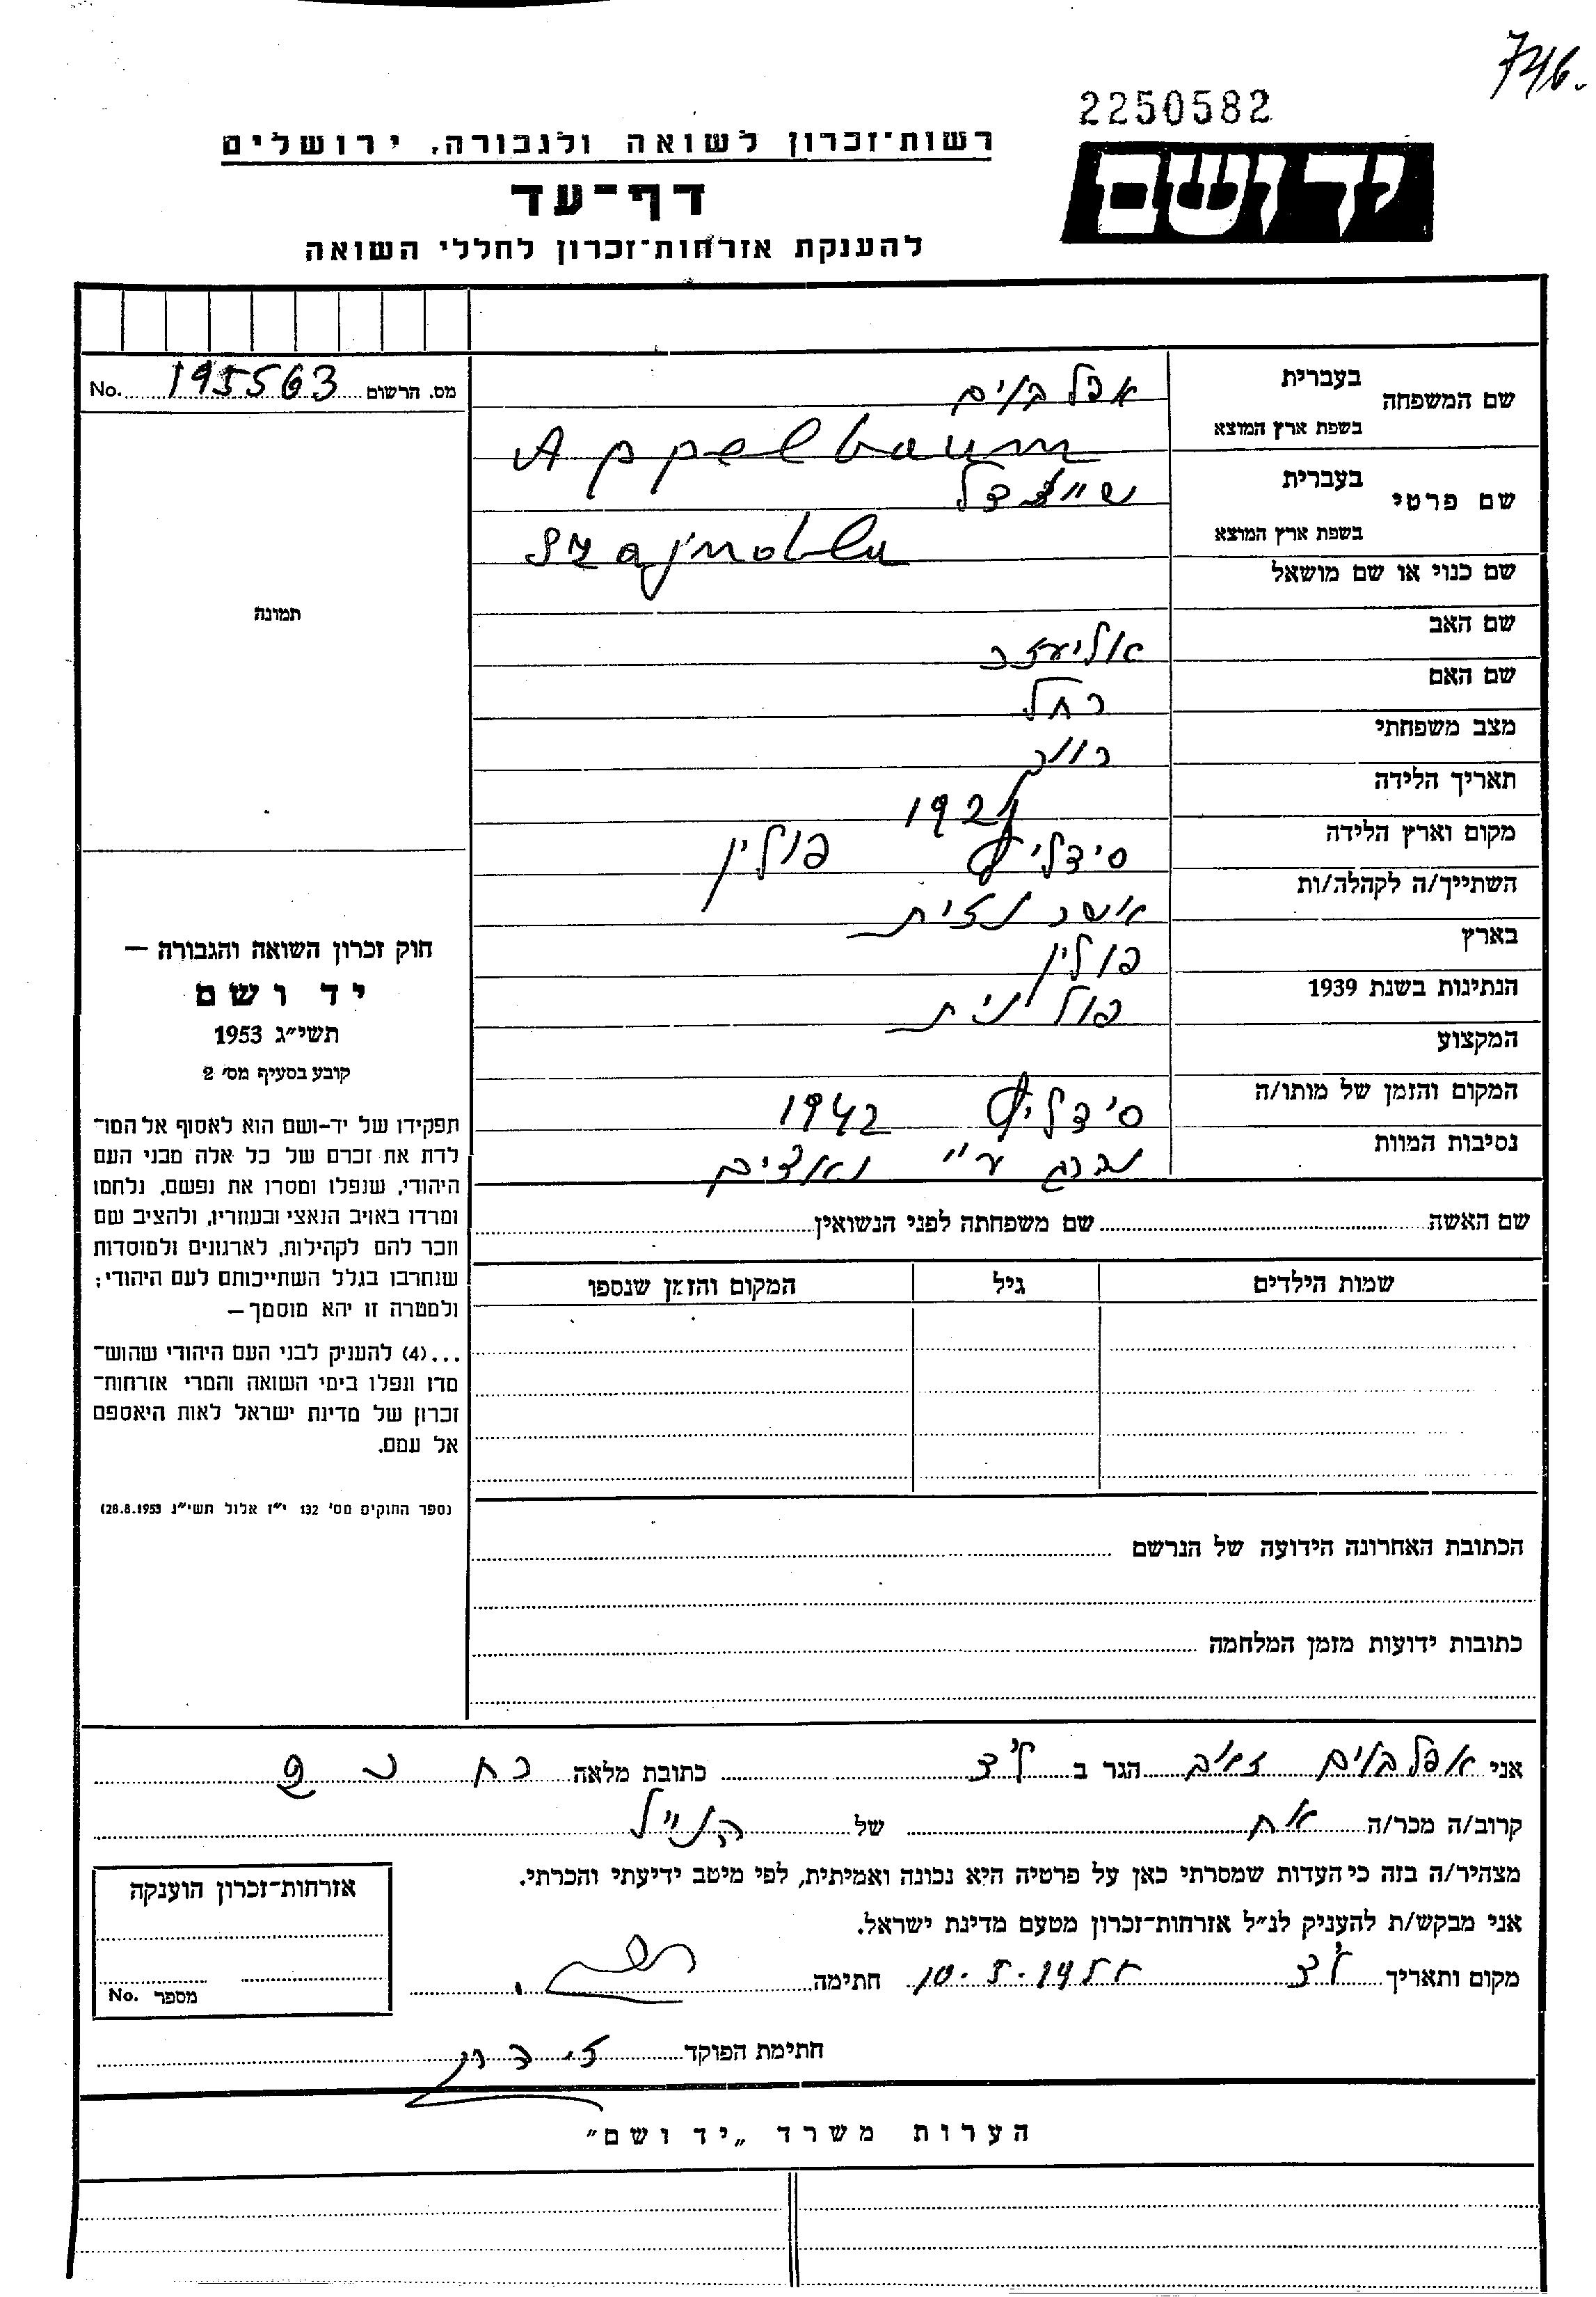 746.
2250582
יד ושם
רשות־זכרון לשואה ולגבורה, ירושלים
דף־עד
להענקת אזרחות־זכרון לחללי השואה
מס. הרשום 195563 No.
שם המשפחה
בעברית
אפלבוים
בשפת ארץ המוצא
Appelbaum
שם פרטי
בעברית
שיינדל
בשפת ארץ המוצא
שם כנוי או שם מושאל
תמונה
שם האב אליעזר
שם האם רחל
מצב משפחתי רווק
תאריך הלידה
מקום וארץ הלידה פולין
השתייך/ה לקהלה/ות
בארץ פולין
הנתינות בשנת 1939 פולנית
המקצוע
המקום והזמן של מותו/ה 1942
נסיבות המוות נהרג ע״י נאצים
שם האשה שם משפחתה לפני הנשואין
שמות הילדים גיל המקום והזמן שנספו
חוק זכרון השואה והגבורה —
יד ושם
תשי״ג 1953
קובע בסעיף מס׳ 2
תפקידו של יד-ושם הוא לאסוף אל המו־
לדת את זכרם של כל אלה מבני העם
היהודי, שנפלו ומסרו את נפשם, נלחמו
ומרדו באויב הנאצי ובעוזריו, ולהציב שם
וזכר להם לקהילות, לארגונים ולמוסדות
שנחרבו בגלל השתייכותם לעם היהודי;
ולמטרה זו יהא מוסמך —
...(4) להעניק לבני העם היהודי שהוש־
מדו ונפלו בימי השואה והמרי אזרחות־
זכרון של מדינת ישראל לאות היאספם
אל עמם.
(ספר החוקים מס׳ 132 י״ז אלול תשי״ג 28.8.1953)
הכתובת האחרונה הידועה של הנרשם
כתובות ידועות מזמן המלחמה
אני אפלבוים זאב הגר ב כתובת מלאה
קרוב/ה מכר/ה אח של הנ״ל
מצהיר/ה בזה כי העדות שמסרתי כאן על פרטיה היא נכונה ואמיתית, לפי מיטב ידיעתי והכרתי.
אני מבקש/ת להעניק לנ״ל אזרחות־זכרון מטעם מדינת ישראל.
מקום ותאריך חתימה
אזרחות־זכרון הוענקה
מספר No.
חתימת הפוקד
הערות משרד „יד ושם״